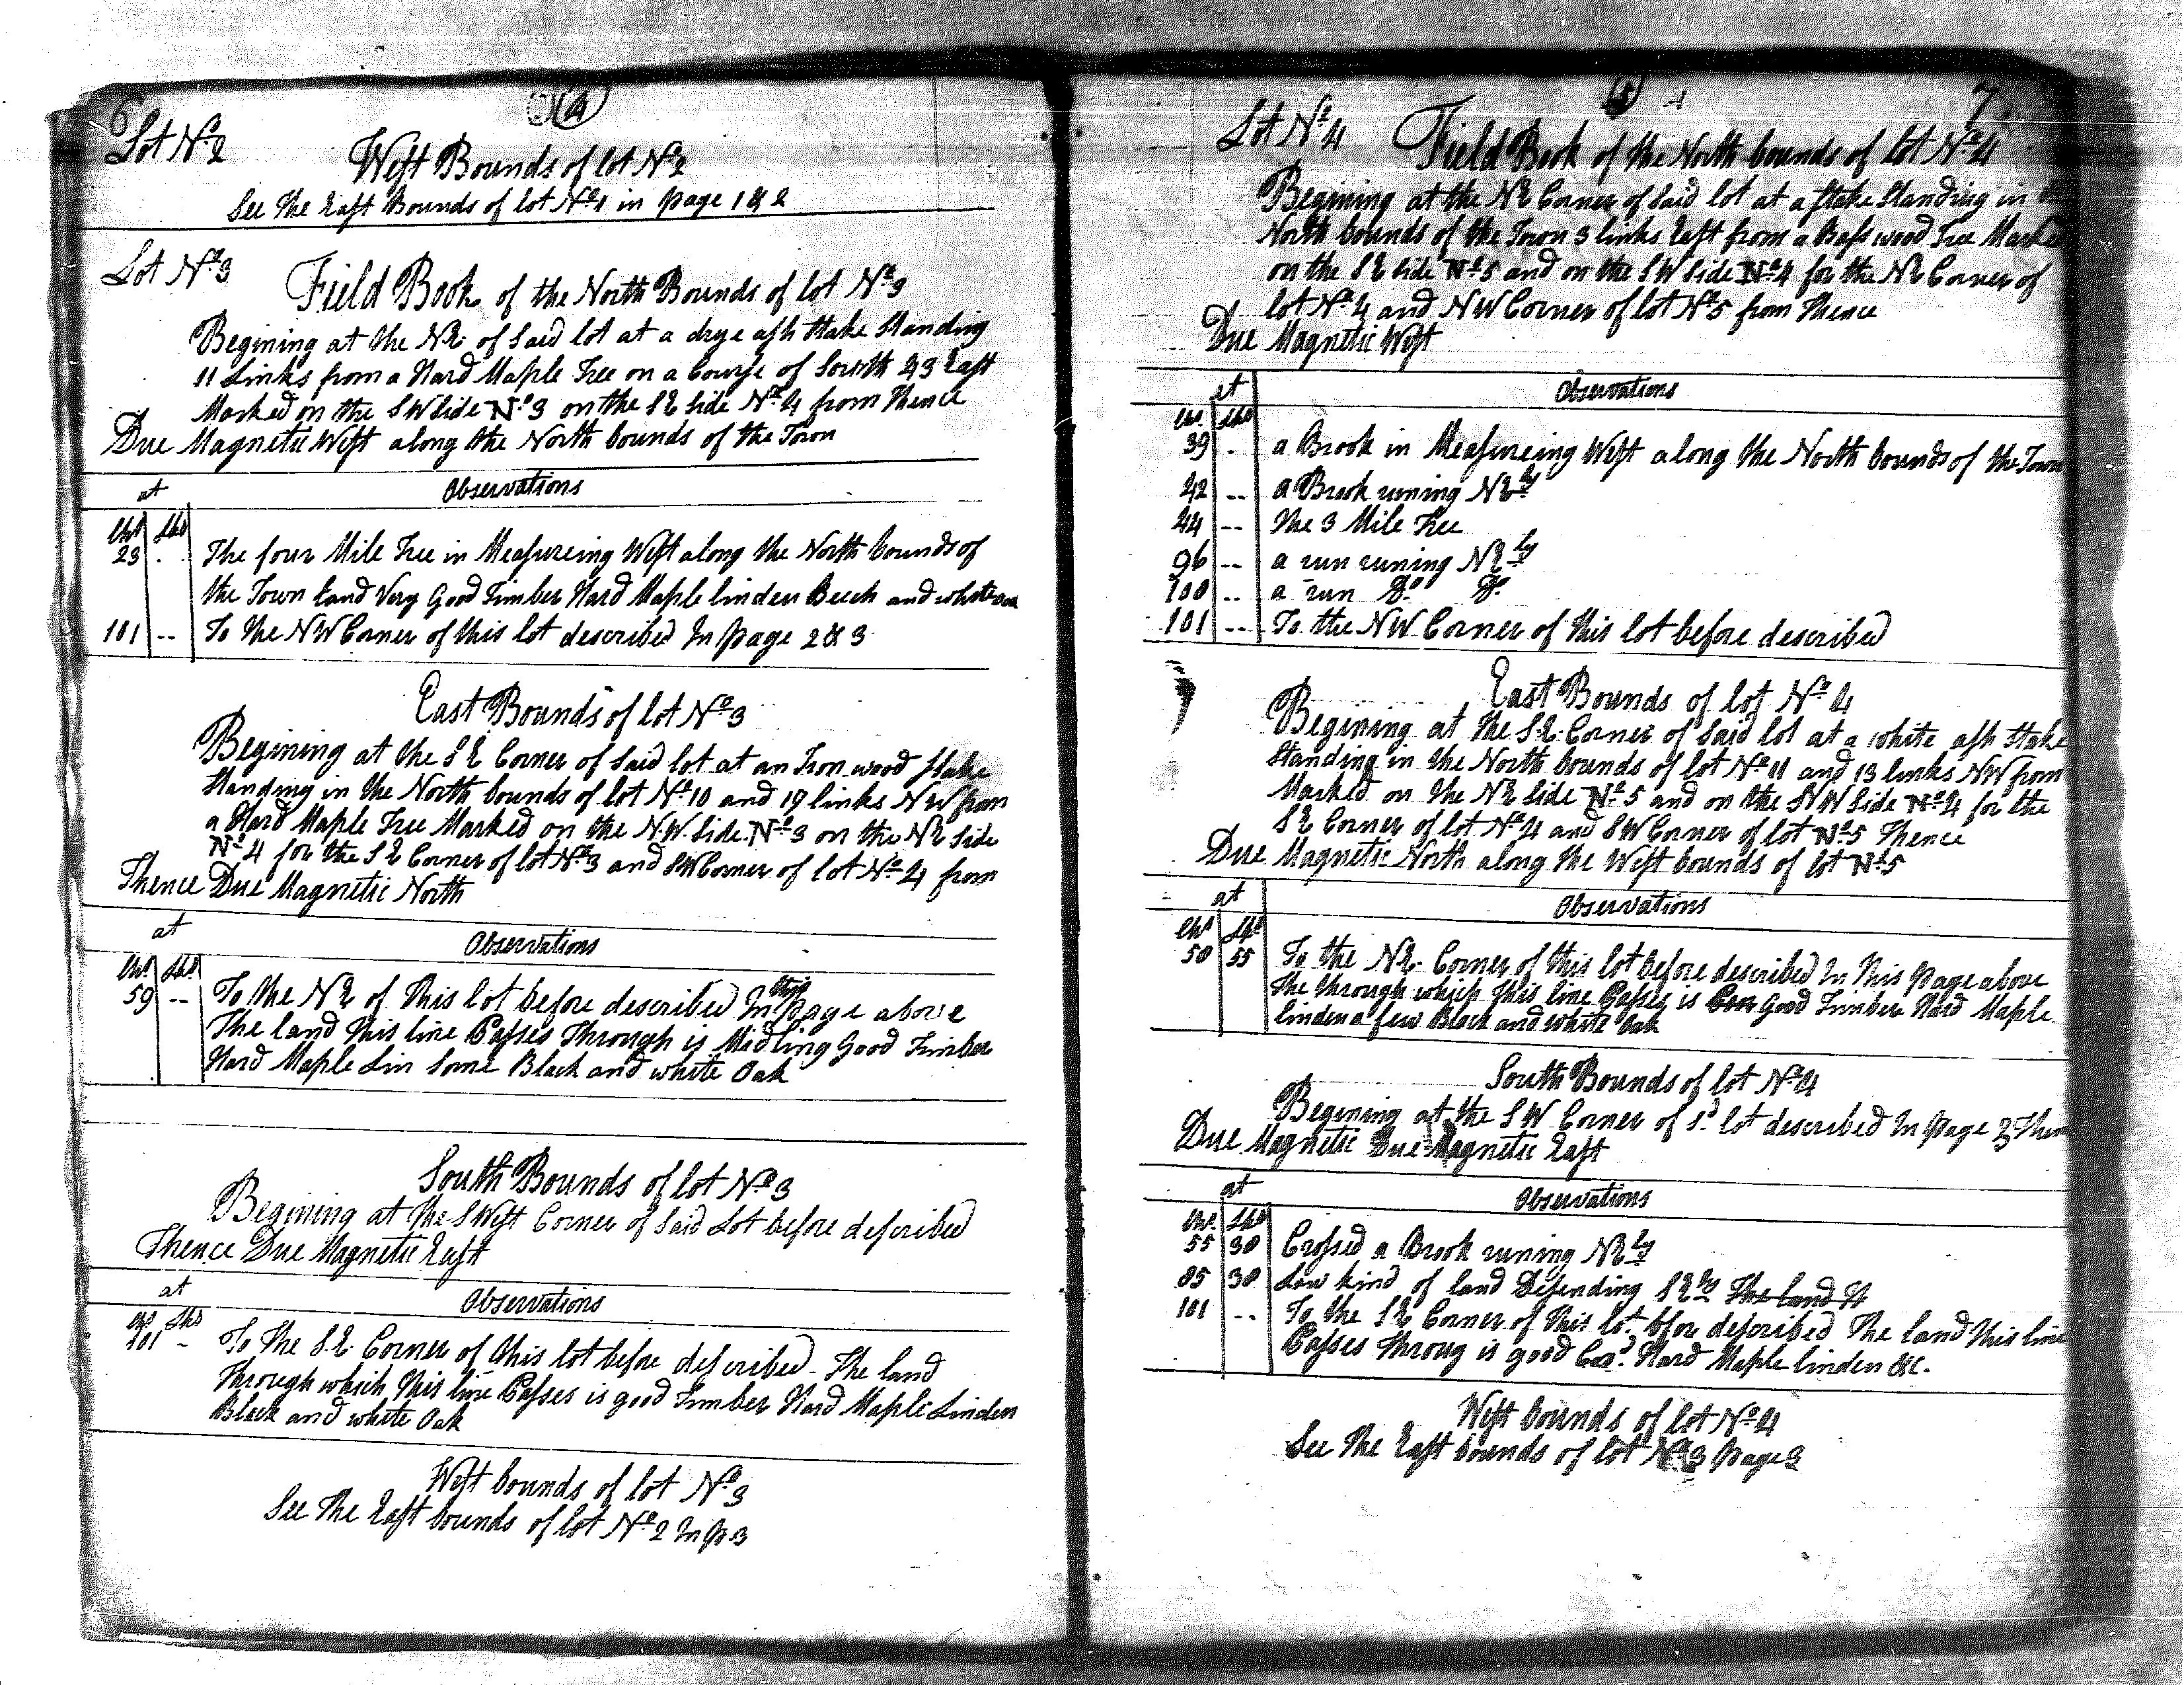 6
(4)
Lot Nº 2
West Bounds of lot Nº 2
See the East Bounds of lot Nº 1 in page 1 & 2
Lot Nº 3
Field Book of the North Bounds of lot Nº 3
Begining at the NE of said lot at a drye ash stake standing
11 Links from a Hard Maple Tree on a Course of South 23 East
Marked on the SW side Nº 3 on the SE side Nº 4 from thence
Due Magnetic West along the North bounds of the Town
at
Observations
Chs Lks
23 . The four Mile Tree in Measureing West along the North bounds of
the Town Land Very Good Timber Hard Maple linden Beech and white oak
101 -- To the NW Corner of this lot described In page 2 & 3
East Bounds of lot Nº 3
Begining at the SE Corner of said lot at an Iron wood stake
standing in the North bounds of lot Nº 10 and 19 links NW from
a Hard Maple Tree Marked on the NW side Nº 3 on the NE side
Nº 4 for the SE Corner of lot Nº 3 and SW Corner of lot Nº 4 from
Thence Due Magnetic North
at
Observations
Chs Lks
59 -- To the NE of this lot before described In this page above
The land this line Passes through is Midling Good Timber
Hard Maple Lin some Black and white Oak
South Bounds of lot Nº 3
Begining at the S West Corner of said Lot before described
Thence Due Magnetic East
at
Observations
Chs Lks
101 - To the S.E. Corner of this lot before described - The land
through which this line Passes is good Timber Hard Maple Linden
Black and white Oak
West bounds of lot Nº 3
See the East bounds of lot Nº 2 In p 3
(5)
7
Lot Nº 4
Field Book of the North bounds of lot Nº 4
Begining at the NE Corner of said lot at a stake standing in the
North bounds of the Town 3 links East from a Bass wood Tree Marked
on the SE side Nº 5 and on the SW side Nº 4 for the NE Corner of
lot Nº 4 and NW Corner of lot Nº 5 from thence
Due Magnetic West
at
Observations
Chs Lks
39 . a Brook in Measureing West along the North bounds of the Town
42 -- a Brook runing NEly
44 -- the 3 Mile Tree
96 -- a run runing NEly
100 -- a run Dº Dº
101 -- To the NW Corner of this lot before described
East Bounds of lot Nº 4
Begining at the S.E. Corner of said lot at a white ash stake
standing in the North bounds of lot Nº 11 and 13 links NW from
Marked on the NE side Nº 5 and on the NW side Nº 4 for the
SE Corner of lot Nº 4 and SW Corner of lot Nº 5 Thence
Due Magnetic North along the West bounds of lot Nº 5
at
Observations
Chs Lks
50 55 To the NE Corner of this lot before described In this page above
the through which this line Passes is Good Timber Hard Maple
linden a few Black and white Oak
South Bounds of lot Nº 4
Begining at the SW Corner of sd lot described In page 3 Thence
Due Magnetic Due Magnetic East
at
Observations
Chs Lks
55 30 Crossed a Brook runing NEly
85 30 Low kind of land Desending SEly The land it
101 -- To the SE Corner of this lot bfore described The land this line
Passes throug is good Hard Maple linden &c.
West bounds of lot Nº 4
See the East bounds of lot Nº 3 page 3